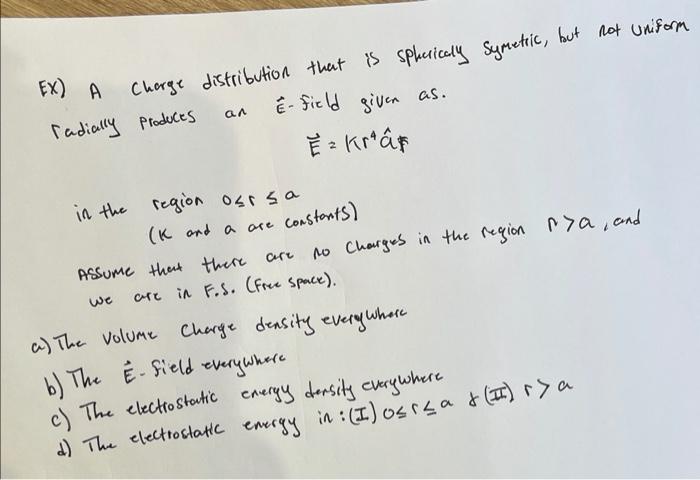 EX) A Charge distribution that is sphericaly symetric, but not uniform
radially produces an E⃗-field given as.
E⃗ = Kr⁴ âr
in the region 0≤r≤a
(K and a are constants)
Assume that there are no charges in the region r>a, and
we are in F.S. (free space).
a) The Volume Charge density everywhere
b) The E⃗-field everywhere
c) The electrostatic energy density everywhere
d) The electrostatic energy in: (I) 0≤r≤a & (II) r>a